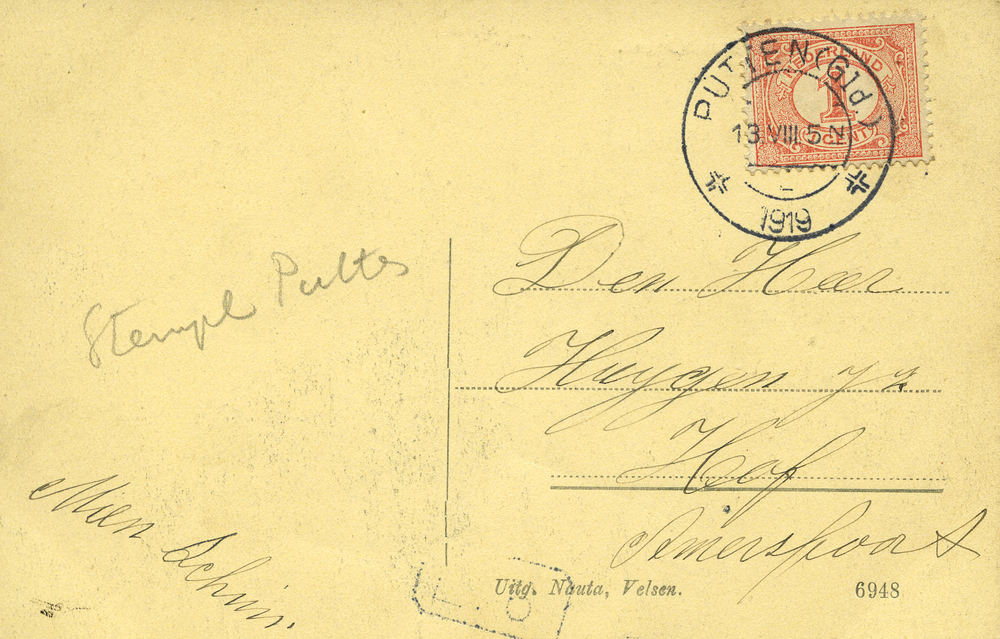 PUTTEN (Gld.)
NEDERLAND
1
CENT
13 VIII 5-N
1919
Den Heer
Huygen jz
Hof
Amersfoort
Stempel Putten
Mien
Uitg. Nauta, Velsen.
6948